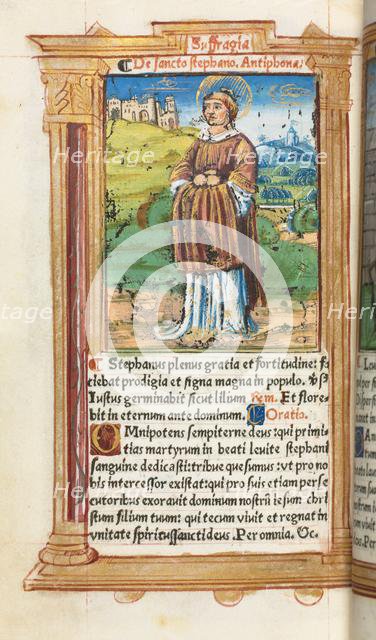 Suffragia
De sancto stephano. Antiphona.
Stephanus plenus gratia et fortitudine: fa
ciebat prodigia et signa magna in populo. v͛s
Iustus germinabit sicut lilium rem. Et flore
bit in eternum ante dominum. Oratio.
OMnipotens sempiterne deus: qui primi
tias martyrum in beati leuite stephani
sanguine dedicasti: tribue quesumus: vt pro no
bis intercessor existat: qui pro suis etiam perse
cutoribus exorauit dominum nostrū iesum chri
stum filium tuum: qui tecum viuit et regnat in
vnitate spiritussancti deus. Per omnia. &c.
Heritage